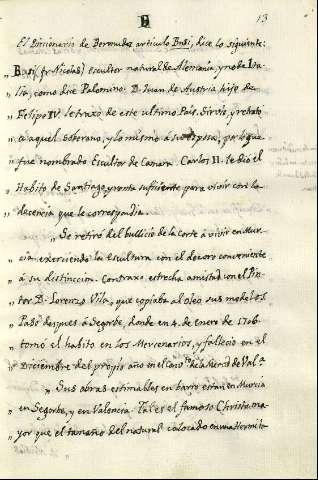 B
13
El Diccionario de Bermudez articulo Busi, dice lo siguiente:
„ Busi (fr Nicolas) Escultor natural de Alemania, y no de Ita-
„ lia, como dice Palomino. D. Juan de Austria hijo de
„ Felipo IV. le traxo de este ultimo Pais. Sirvio, y retrato
„ a aquel soberano, y lo mismo á su esposa, por lo que
„ fue nombrado Escultor de Camara. Carlos II. le dió el
„ Habito de Santiago, y renta suficiente para vivir con la
„ decencia que le correspondia.
„ Se retiró del bullicio de la corte á vivir en Mur-
„ cia exerciendo la escultura con el decoro conveniente
„ á su distincion. Contraxo estrecha amistad con el Pin-
„ tor D. Lorenzo Vila, que copiaba al oleo sus modelos
„ Pasó despues á Segorbe, donde en 4. de Enero de 1706.
„ tomó el habito en los Mercenarios, y falleció en el
„ Diciembre del propio año en el Convto. de la Merced de Vala.
„ Sus obras estimables en barro estan en Murcia
„ en Segorbe, y en Valencia. Tal es el famoso Christo ma-
„ yor que el tamaño del natural colocado en una Hermita